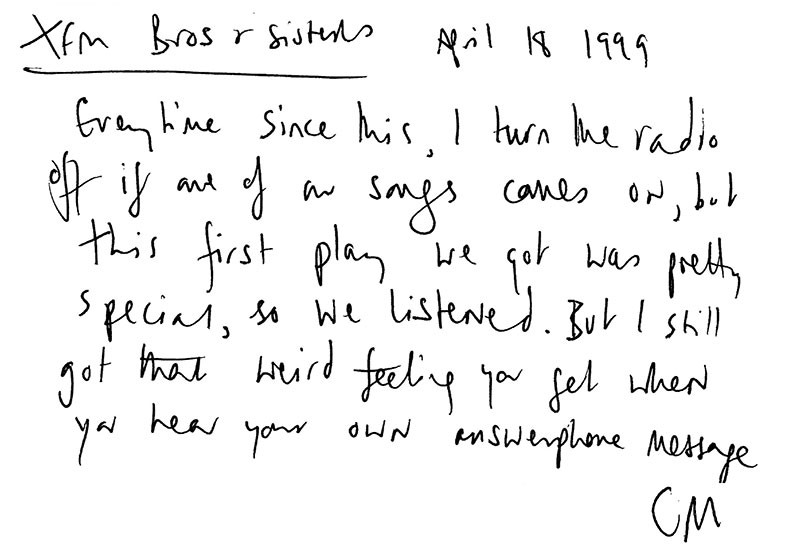 Xfm Bros & Sisters April 18 1999
Everytime since this, I turn the radio
off if one of our songs comes on, but
this first play we got was pretty
special, so we listened. But I still
got that weird feeling you get when
you hear your own answerphone message
CM